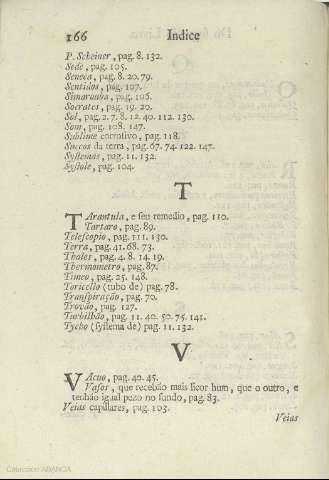 166 Indice
P. Scheiner, pag. 8. 132.
Sede, pag. 105.
Seneca, pag. 8. 20. 79.
Sentidos, pag. 107.
Simarouba, pag. 106.
Socrates, pag. 19. 20.
Sol, pag. 2. 7. 8. 12. 40. 112. 130.
Som, pag. 108. 147.
Sublime corrosivo, pag. 118.
Succos da terra, pag. 67. 74. 122. 147.
Systemas, pag. 11. 132.
Systole, pag. 104.
T
TArantula, e seu remedio, pag. 110.
Tartaro, pag. 89.
Telescopio, pag. 111. 130.
Terra, pag. 41. 68. 73.
Thales, pag. 4. 8. 14. 19.
Thermometro, pag. 87.
Timeo, pag. 25. 148.
Toricello (tubo de) pag. 78.
Transpiração, pag. 70.
Trovão, pag. 127.
Turbilhão, pag. 11. 40. 50. 75. 141.
Tycho (systema de) pag. 11. 132.
V
VAcuo, pag. 40. 45.
Vasos, que recebão mais licor hum, que o outro, e
tenhão igual pezo no fundo, pag. 83.
Veias capillares, pag. 103.
Veias
Colección ABANCA